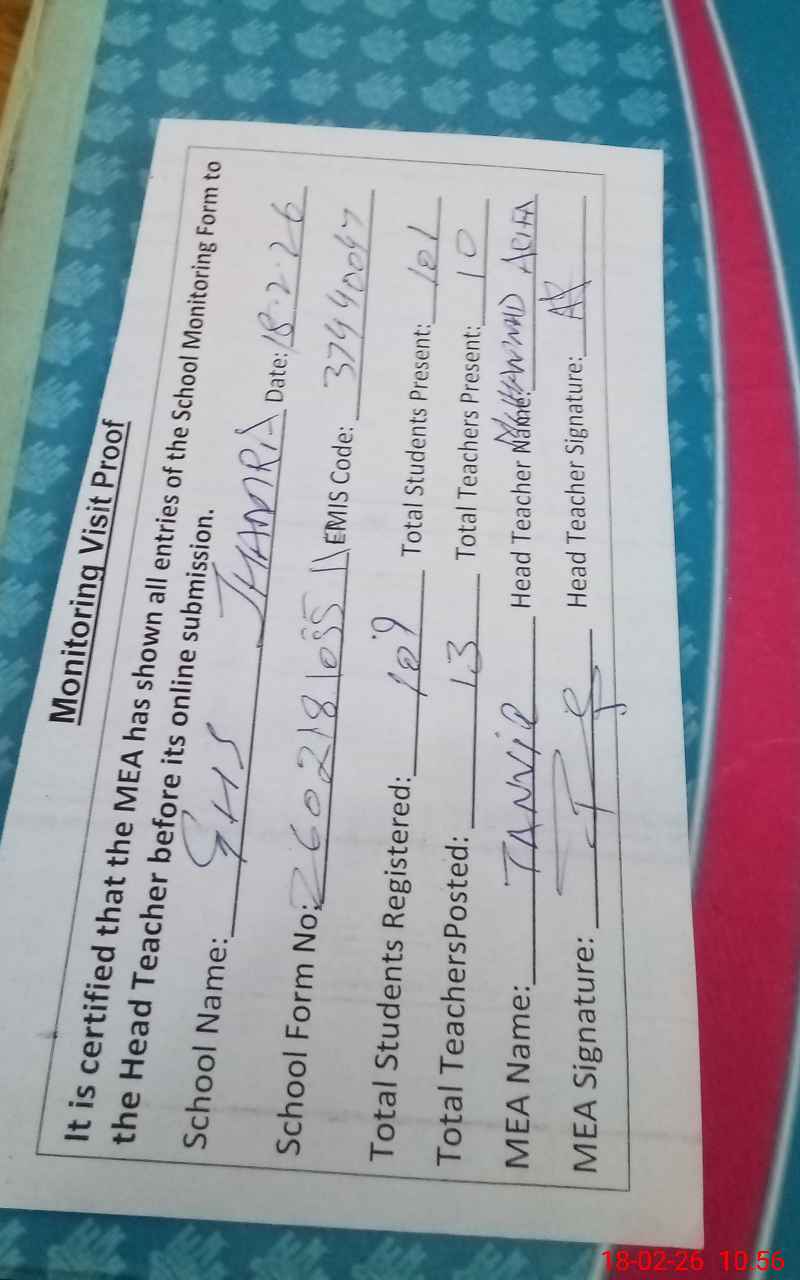 Monitoring Visit Proof
It is certified that the MEA has shown all entries of the School Monitoring Form to
the Head Teacher before its online submission.
School Name: GHS JHAMRA Date: 18.2.26
School Form No: 2602181055 11 EMIS Code: 37440047
Total Students Registered: 109 Total Students Present: 101
Total TeachersPosted: 13 Total Teachers Present: 10
MEA Name: TANVIR Head Teacher Name: MUHAMMAD
MEA Signature: Head Teacher Signature:
18-02-26 10:56